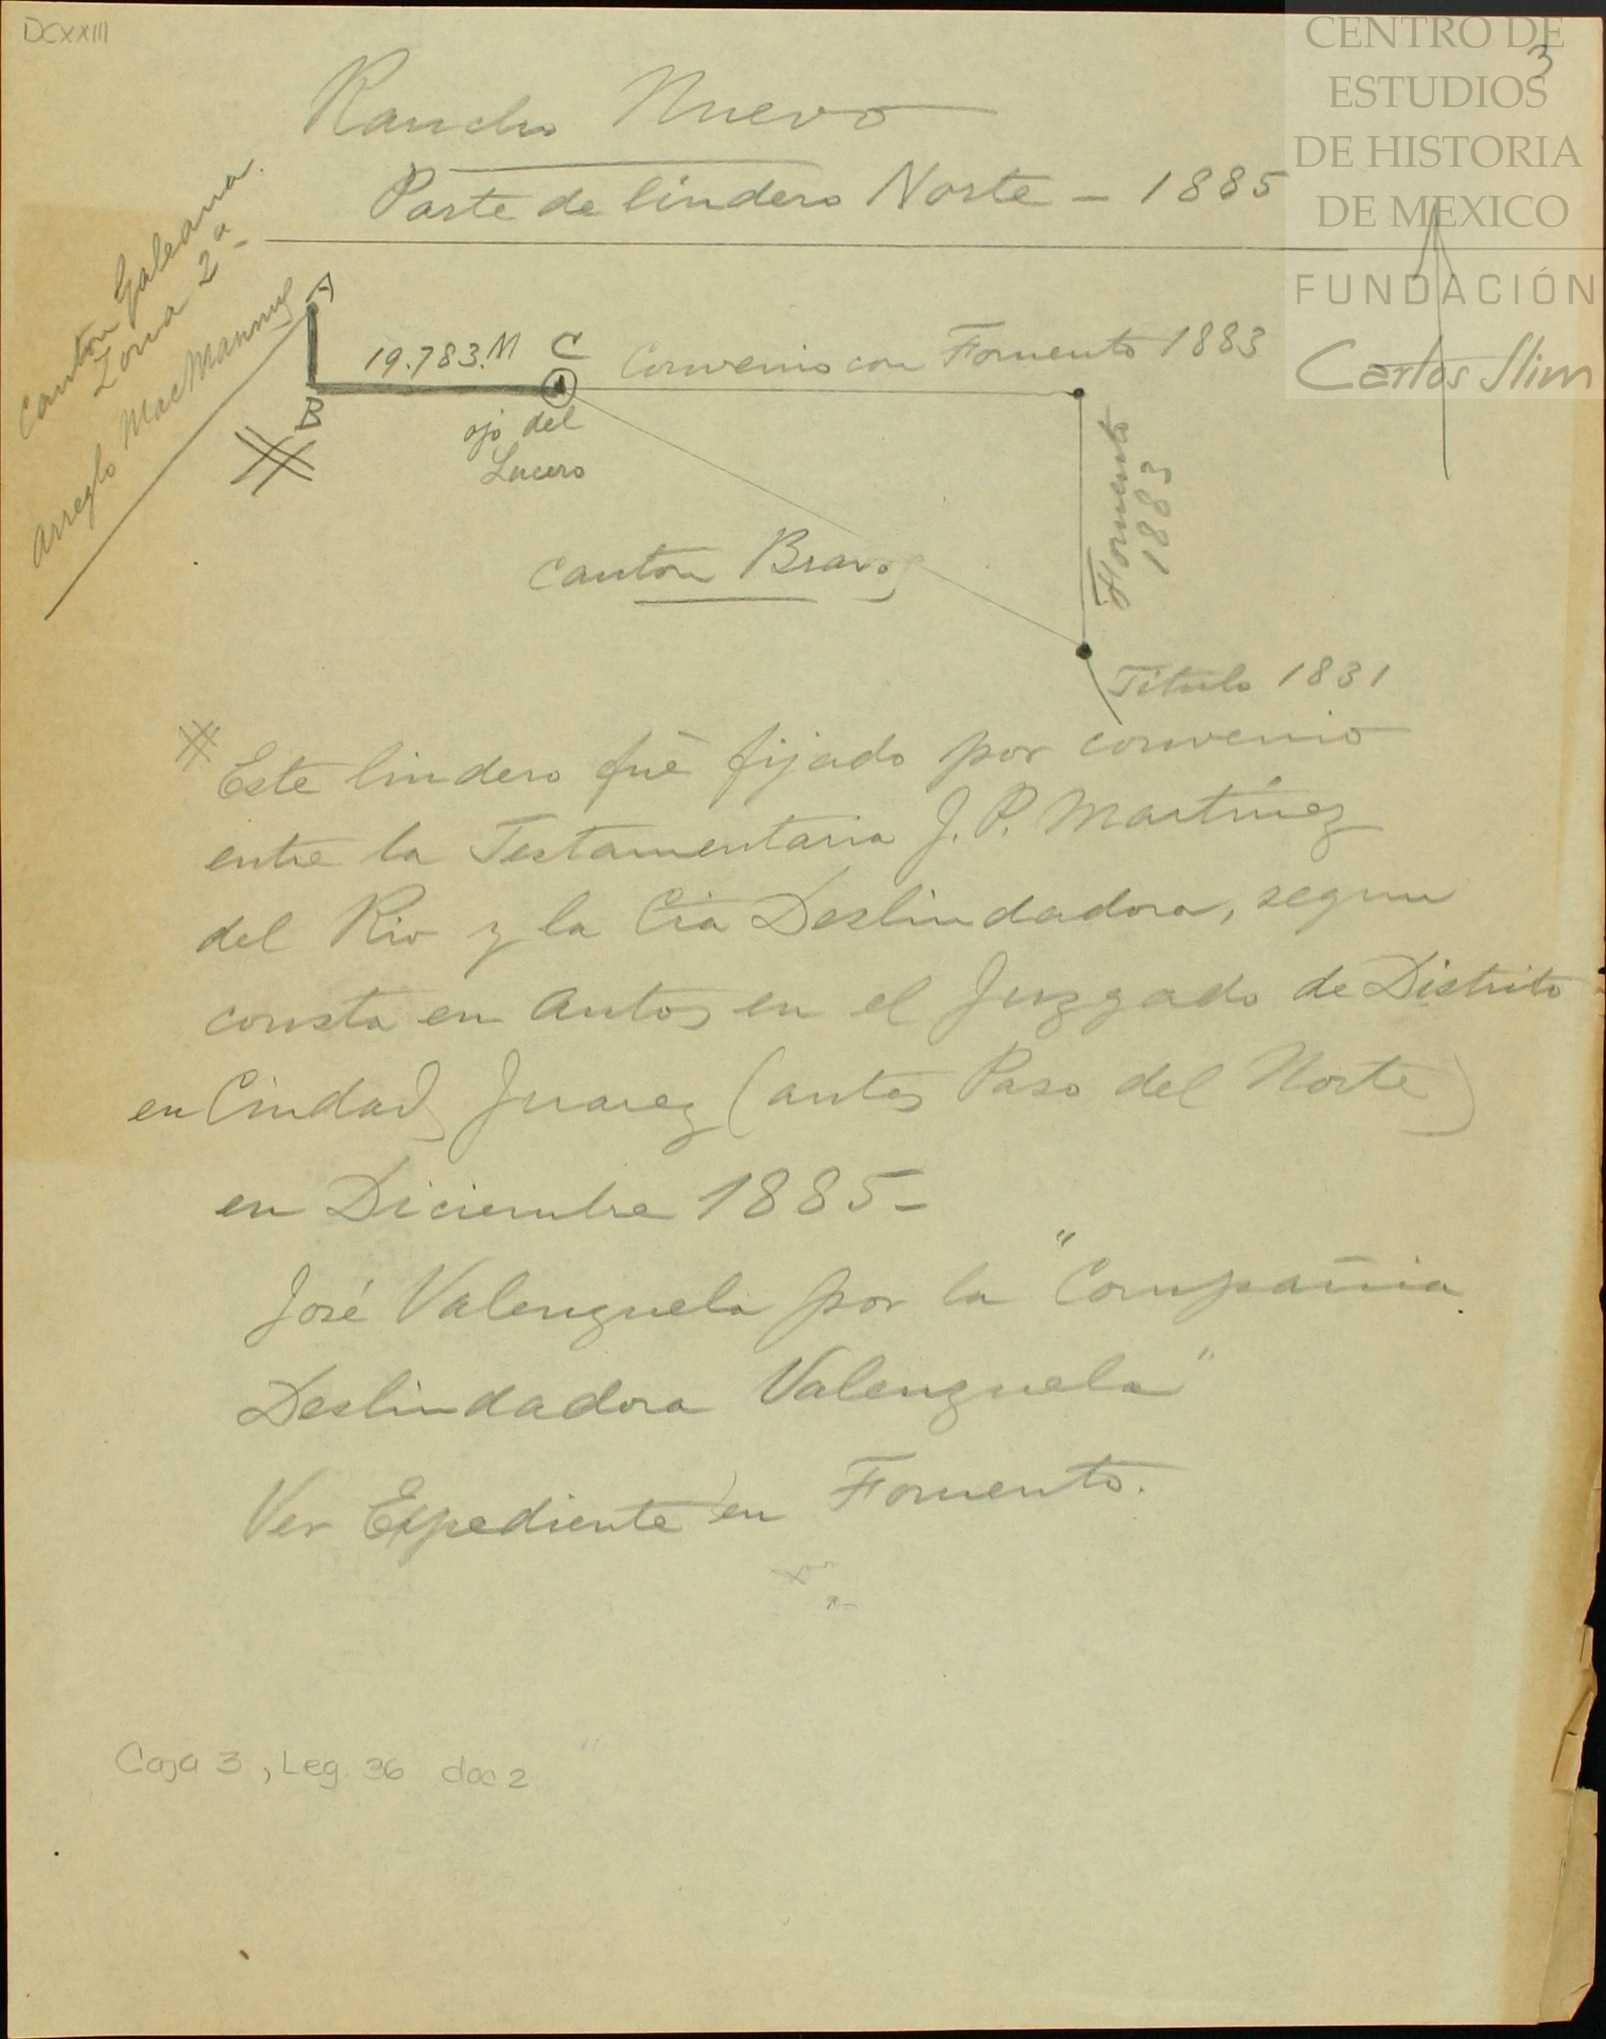 DCXXIII
CENTRO DE
ESTUDIOS
DE HISTORIA
DE MEXICO
FUNDACIÓN
Carlos Slim
3
Rancho Nuevo
Parte de lindero Norte - 1885
Canton Galeana.
Zona 2a
Arreglo MacManus
A
19.783.M C
Convenio con Fomento 1883
B
ojo del
Lucero
Fomento
1883
Canton Bravos
Titulo 1831
Este lindero fué fijado por convenio
entre la Testamentaria J. P. Martínez
del Rio y la Cia Deslindadora, segun
consta en Autos en el Juzgado de Distrito
en Ciudad Juarez (antes Paso del Norte)
en Diciembre 1885-
José Valenzuela por la "Compañia
Deslindadora Valenzuela"
Ver Expediente en Fomento.
Caja 3, Leg. 36 doc 2